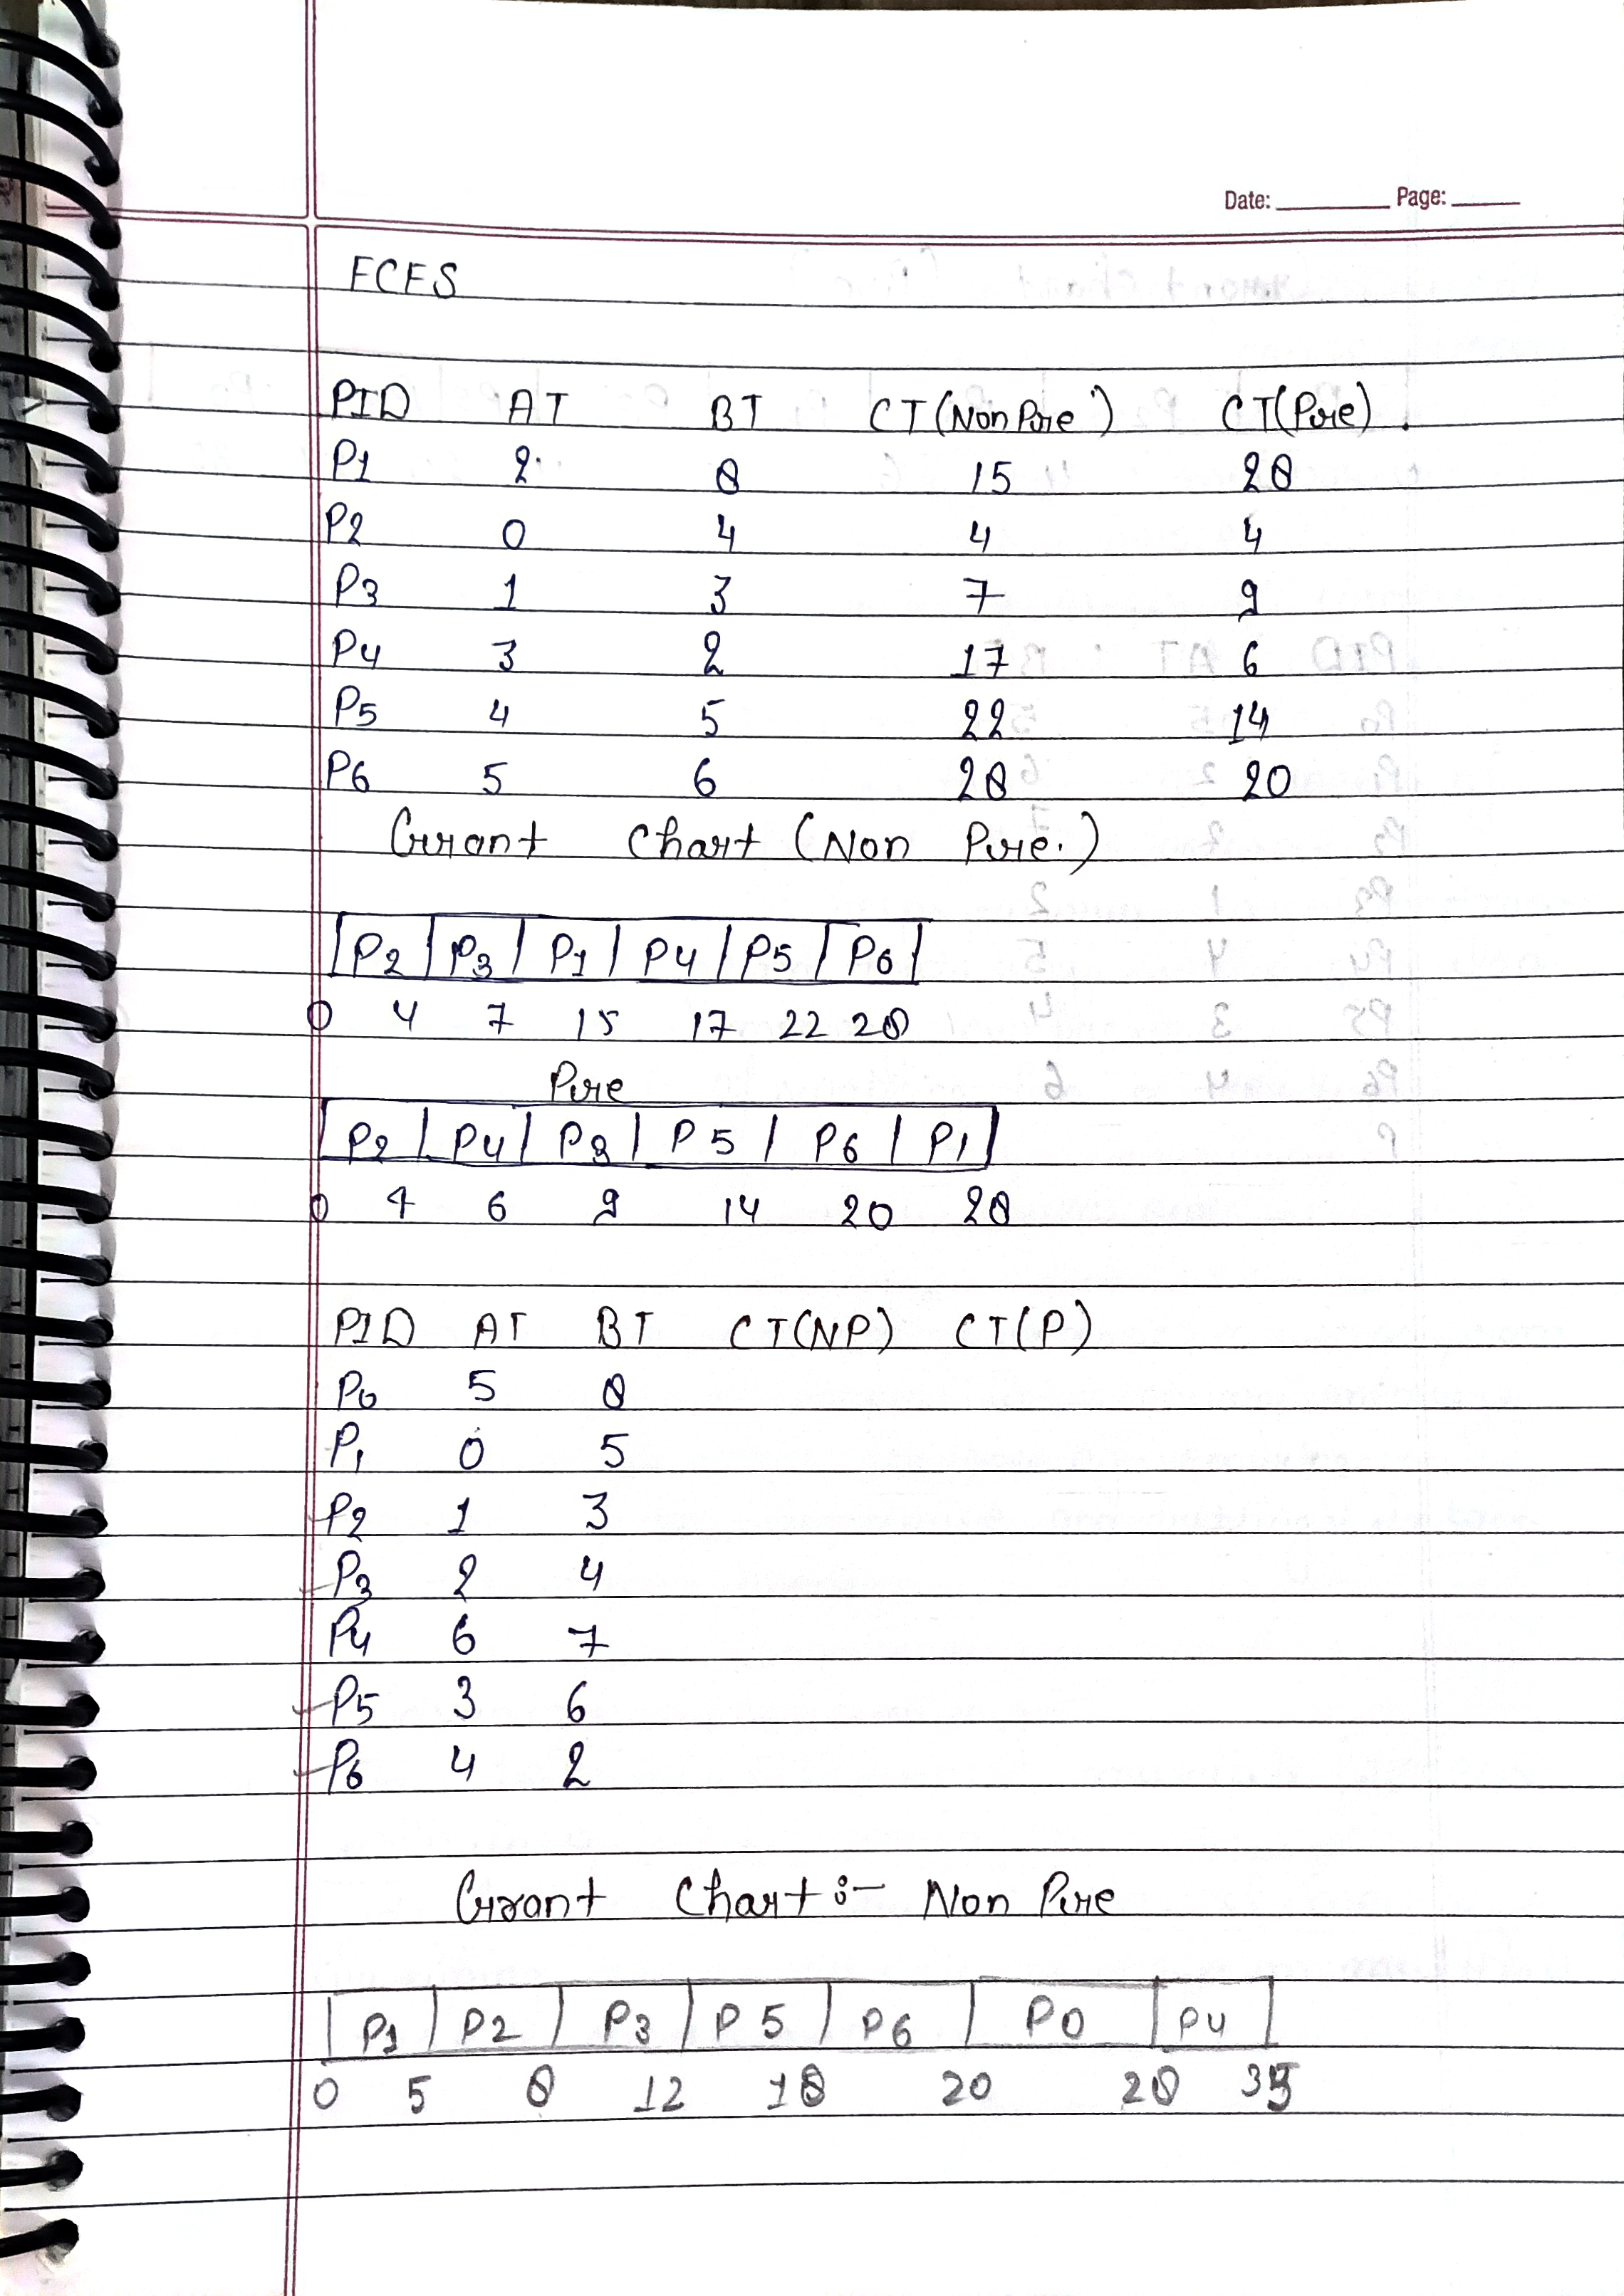 Date: Page:
FCFS
PID AT BT CT(Non Pre) CT(Pre).
P1 2 8 15 28
P2 0 4 4 4
P3 1 3 7 9
P4 3 2 17 6
P5 4 5 22 14
P6 5 6 28 20
Grant Chart (Non Pre.)
P2 P3 P1 P4 P5 P6
0 4 7 15 17 22 28
Pre
P2 P4 P3 P5 P6 P1
0 4 6 9 14 20 28
PID AT BT CT(NP) CT(P)
P0 5 8
P1 0 5
P2 1 3
P3 2 4
P4 6 7
P5 3 6
P6 4 2
Grant Chart :- Non Pre
P1 P2 P3 P5 P6 P0 P4
0 5 8 12 18 20 28 35